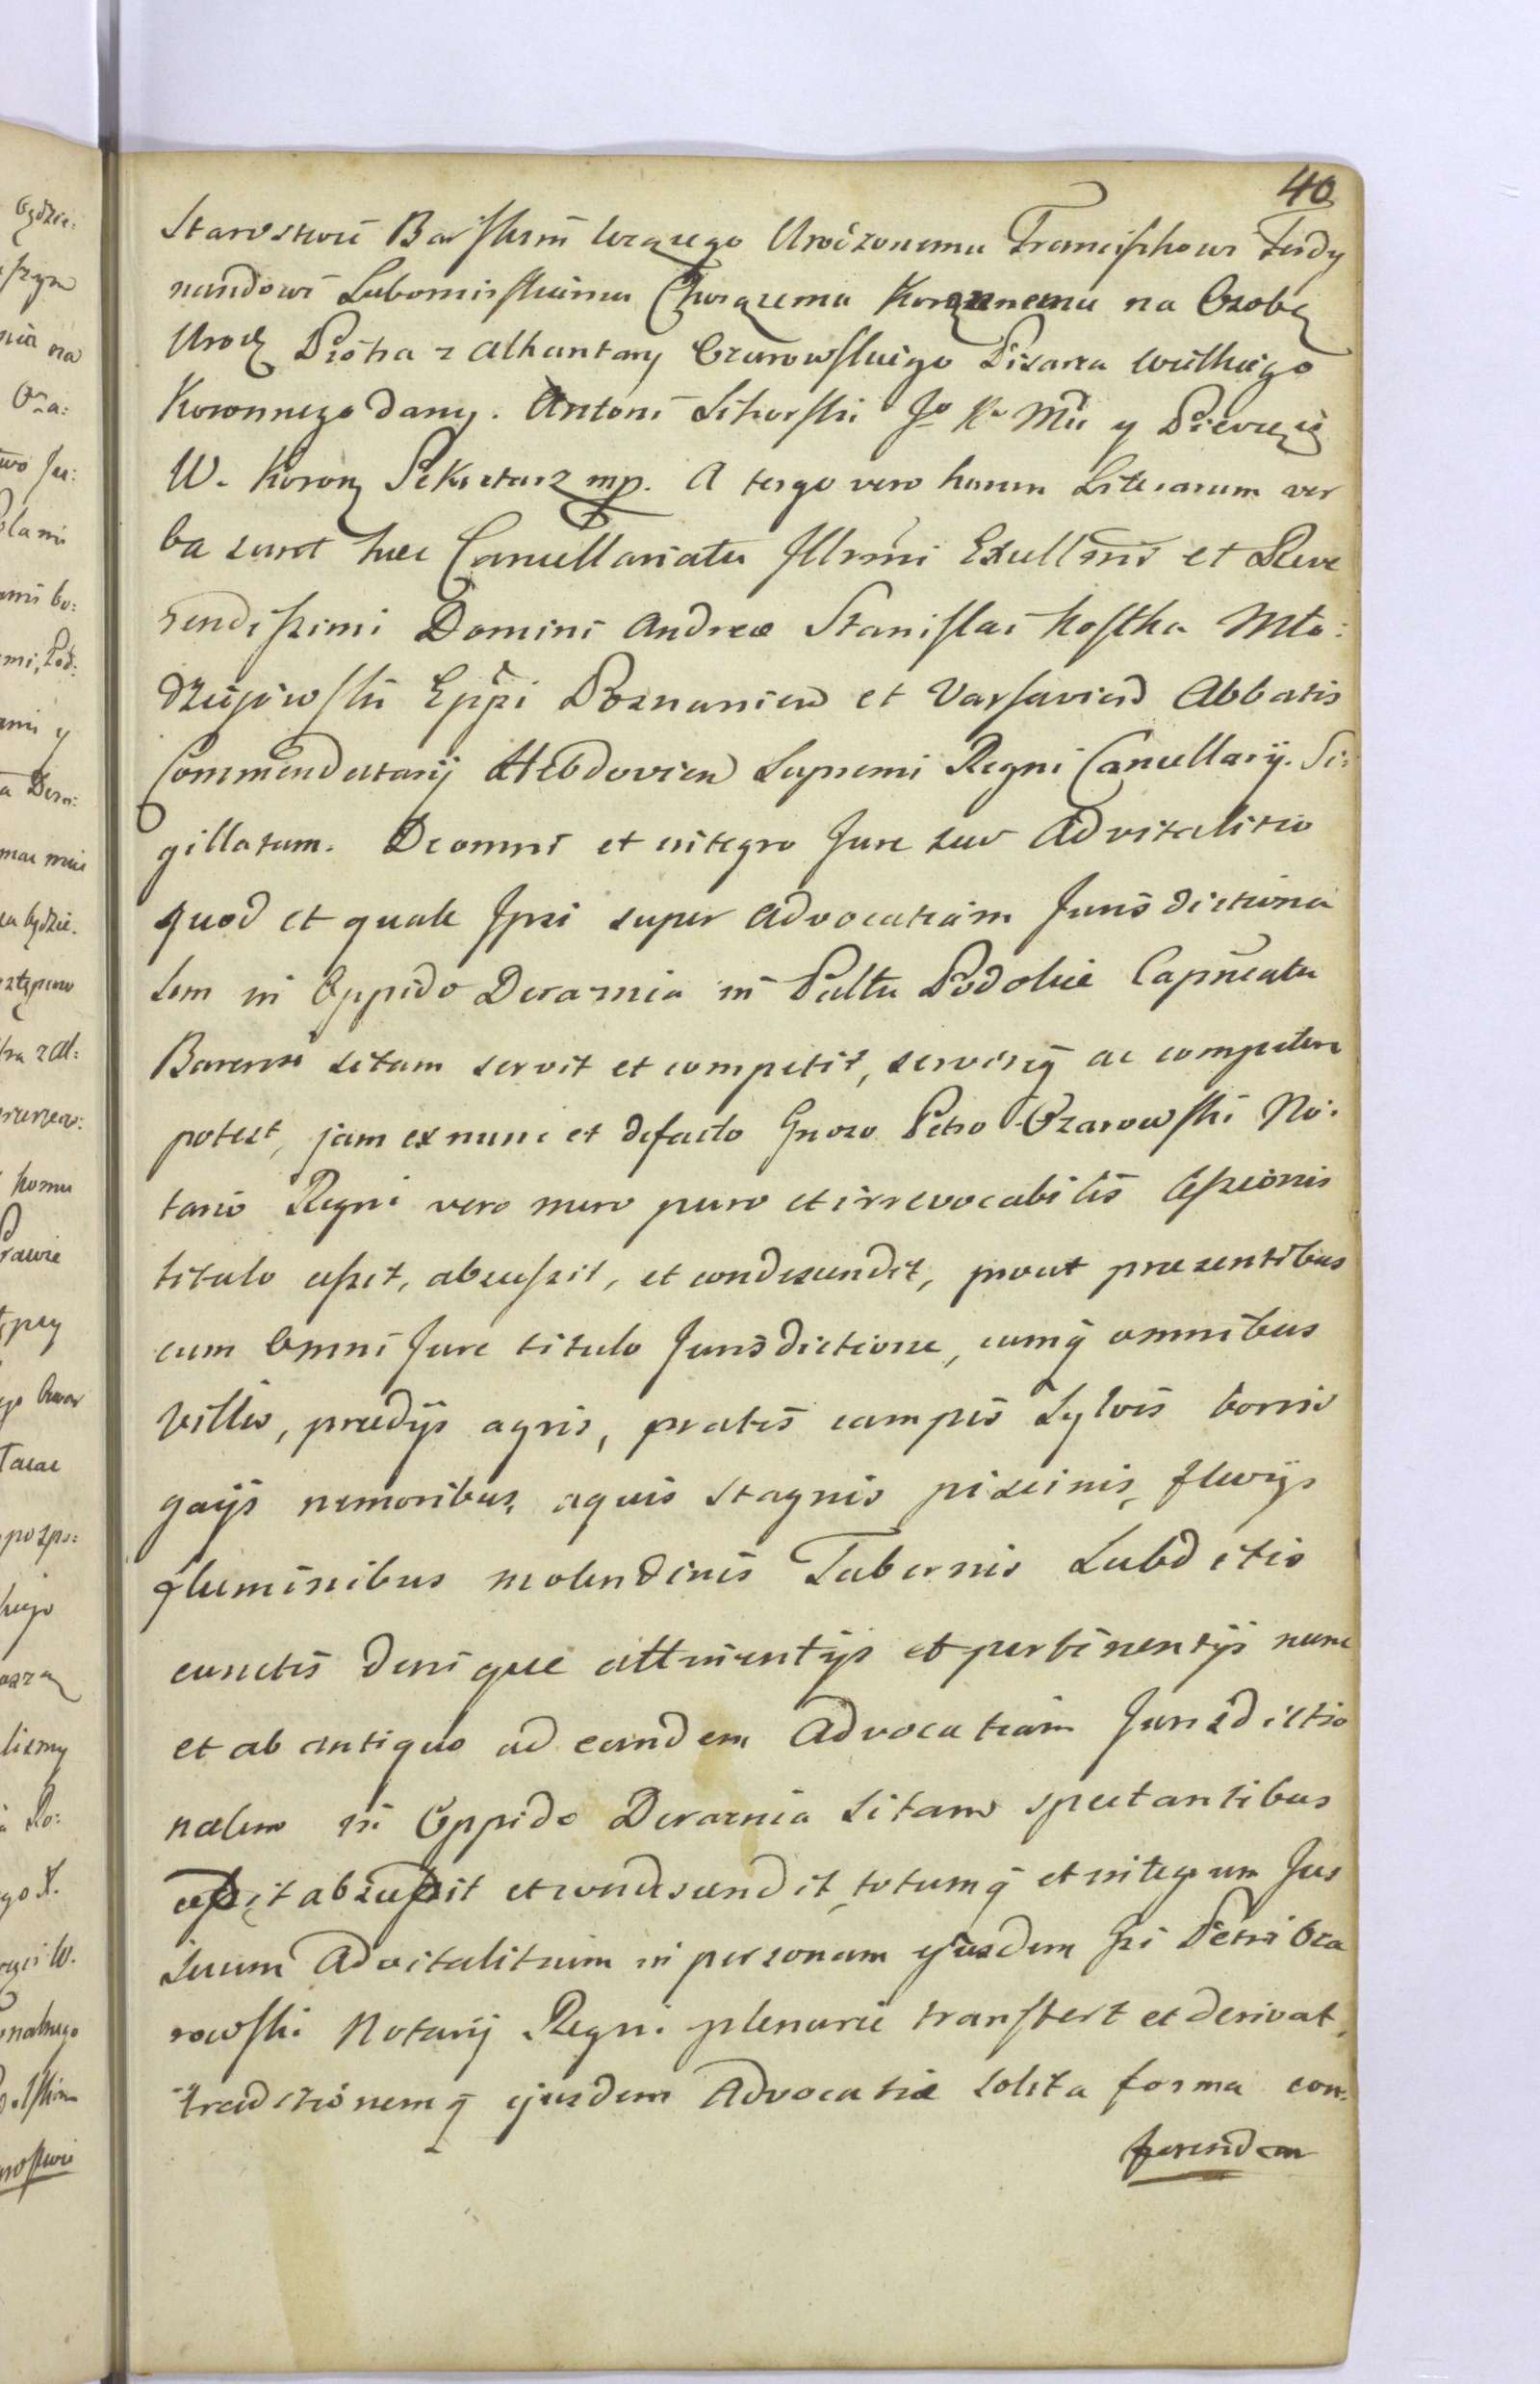 40
Starostwie Barskim leżącego Urodzonemu Franciszkowi Ferdy
nandowi Lubomirskiemu Chorążemu Koronnemu na Osobę
Urodz Piotra z Alkantary Ożarowskiego Pisarza wielkiego
Koronnego dany. Antoni Sikorski Jo Kr Mci y Pieczęci
W. Koron Sekretarz mp. A tergo vero harum Literarum ver
ba sunt haec Cancellariatu Illrmi Excellmi et Reve
rendissimi Domini Andreae Stanislai Kostka Mło:
dziejowski Eppi Posnanien et Varsavien Abbatis
Commendatarij Hebdovien Supremi Regni Cancellarij. Si:
gillatum. De omni et integro Jure suo Advitalitio
quod et quale Ipsi super Advocatiam Jurisdictiona
lem in Oppido Derażnia in Paltu Podoliae Capneatu
Barensi sitam servit et competit, servireq ac competere
potest, jam ex nunc et de facto Gnoso Petro Ożarowski No:
tario Regni vero mero puro et irrevocabilis Cessionis
titulo cessit, abscessit, et condescendit, prout praesentibus
cum Omni Jure titulo Jurisdictione, cumq omnibus
villis, praedijs agris, pratis campis Sylvis borris
gaijs nemoribus, aquis stagnis piscinis, fluvijs
fluminibus molendinis Tabernis Subditis
cunctis denique attinentijs et pertinentijs nunc
et ab antiquo ad eandem Advocatiam Jurisdictio
nalem in Oppido Derażnia sitam spectantibus
cessit abscessit et condescendit, totumq et integrum Jus
suum Advitalitium in personam ejusdem Gsi Petri Oża
rowski Notarij Regni plenarie transfert et derivat,
traditionemq ejusdem Advocatiae solita forma con:
ferendam